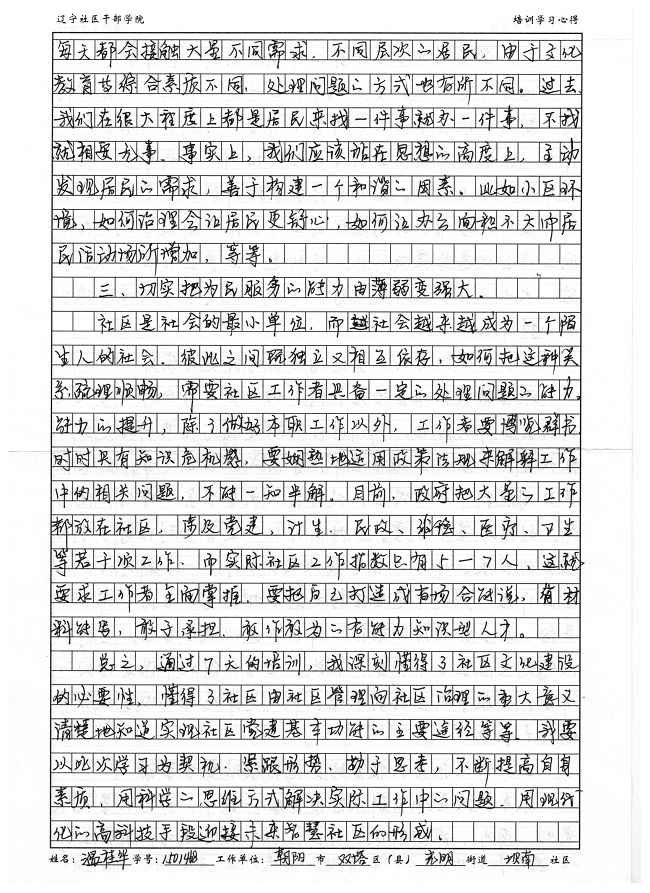 辽宁社区干部学院 培训学习心得
每天都会接触大量不同需求、不同层次的居民，由于文化
教育与综合素质不同，处理问题的方式也有所不同。过去
我们在很大程度上都是居民来找一件事就办一件事，不找
就相安无事。事实上，我们应该站在思想的高度上，主动
发现居民的需求，善于构建一个和谐的因素。比如小区环
境，如何治理会让居民更舒心，如何让办公面积不大冲居
民活动场所增加，等等。
三、切实把为民服务的能力由薄弱变强大。
社区是社会的最小单位，而越社会越来越成为一个陌
生人的社会，彼此之间既独立又相互依存，如何把这种关
系疏理顺畅，需要社区工作者具备一定的处理问题的能力。
能力的提升，除了做好本职工作以外，工作者要博览群书
时时具有知识危机感，要娴熟地运用政策法规来解释工作
中的相关问题，不能一知半解。目前，政府把大量的工作
都放在社区，涉及党建、计生、民政、维稳、医疗、卫生
等若干项工作，而实际社区工作指数只有5－7人，这就
要求工作者全面掌握，要把自己打造成有场合能说，有材
料能写，敢于承担，敢作敢为的有能力知识型人才。
总之，通过7天的培训，我深刻懂得了社区文化建设
的必要性，懂得了社区由社区管理向社区治理的重大意义
清楚地知道实现社区党建基本功能的主要途经等等，我要
以此次学习为契机，紧跟形势、勤于思考，不断提高自身
素质，用科学的思维方式解决实际工作中的问题，用现代
化的高科技手段迎接未来智慧社区的形成。
姓名：温桂华 学号：150148 工作单位：朝阳 市 双塔 区（县） 光明 街道 坝南 社区